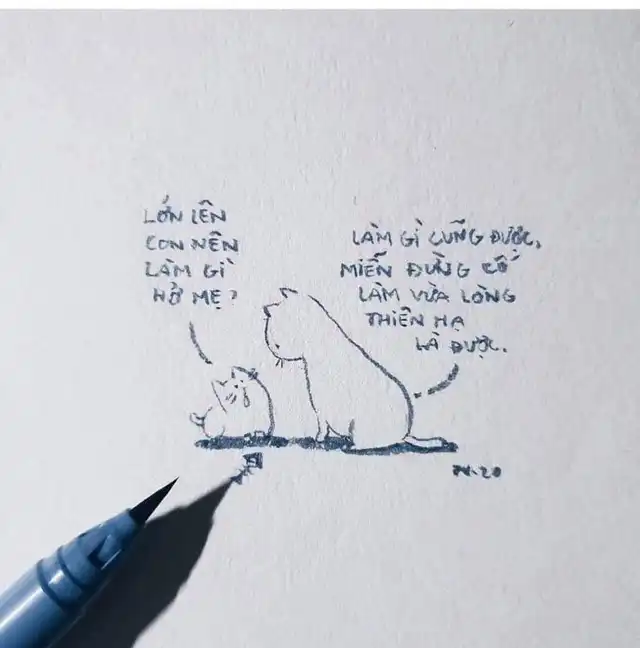 LỚN LÊN
CON NÊN
LÀM GÌ
HỞ MẸ?
LÀM GÌ CŨNG ĐƯỢC,
MIỄN ĐỪNG CỐ
LÀM VỪA LÒNG
THIÊN HẠ
LÀ ĐƯỢC.